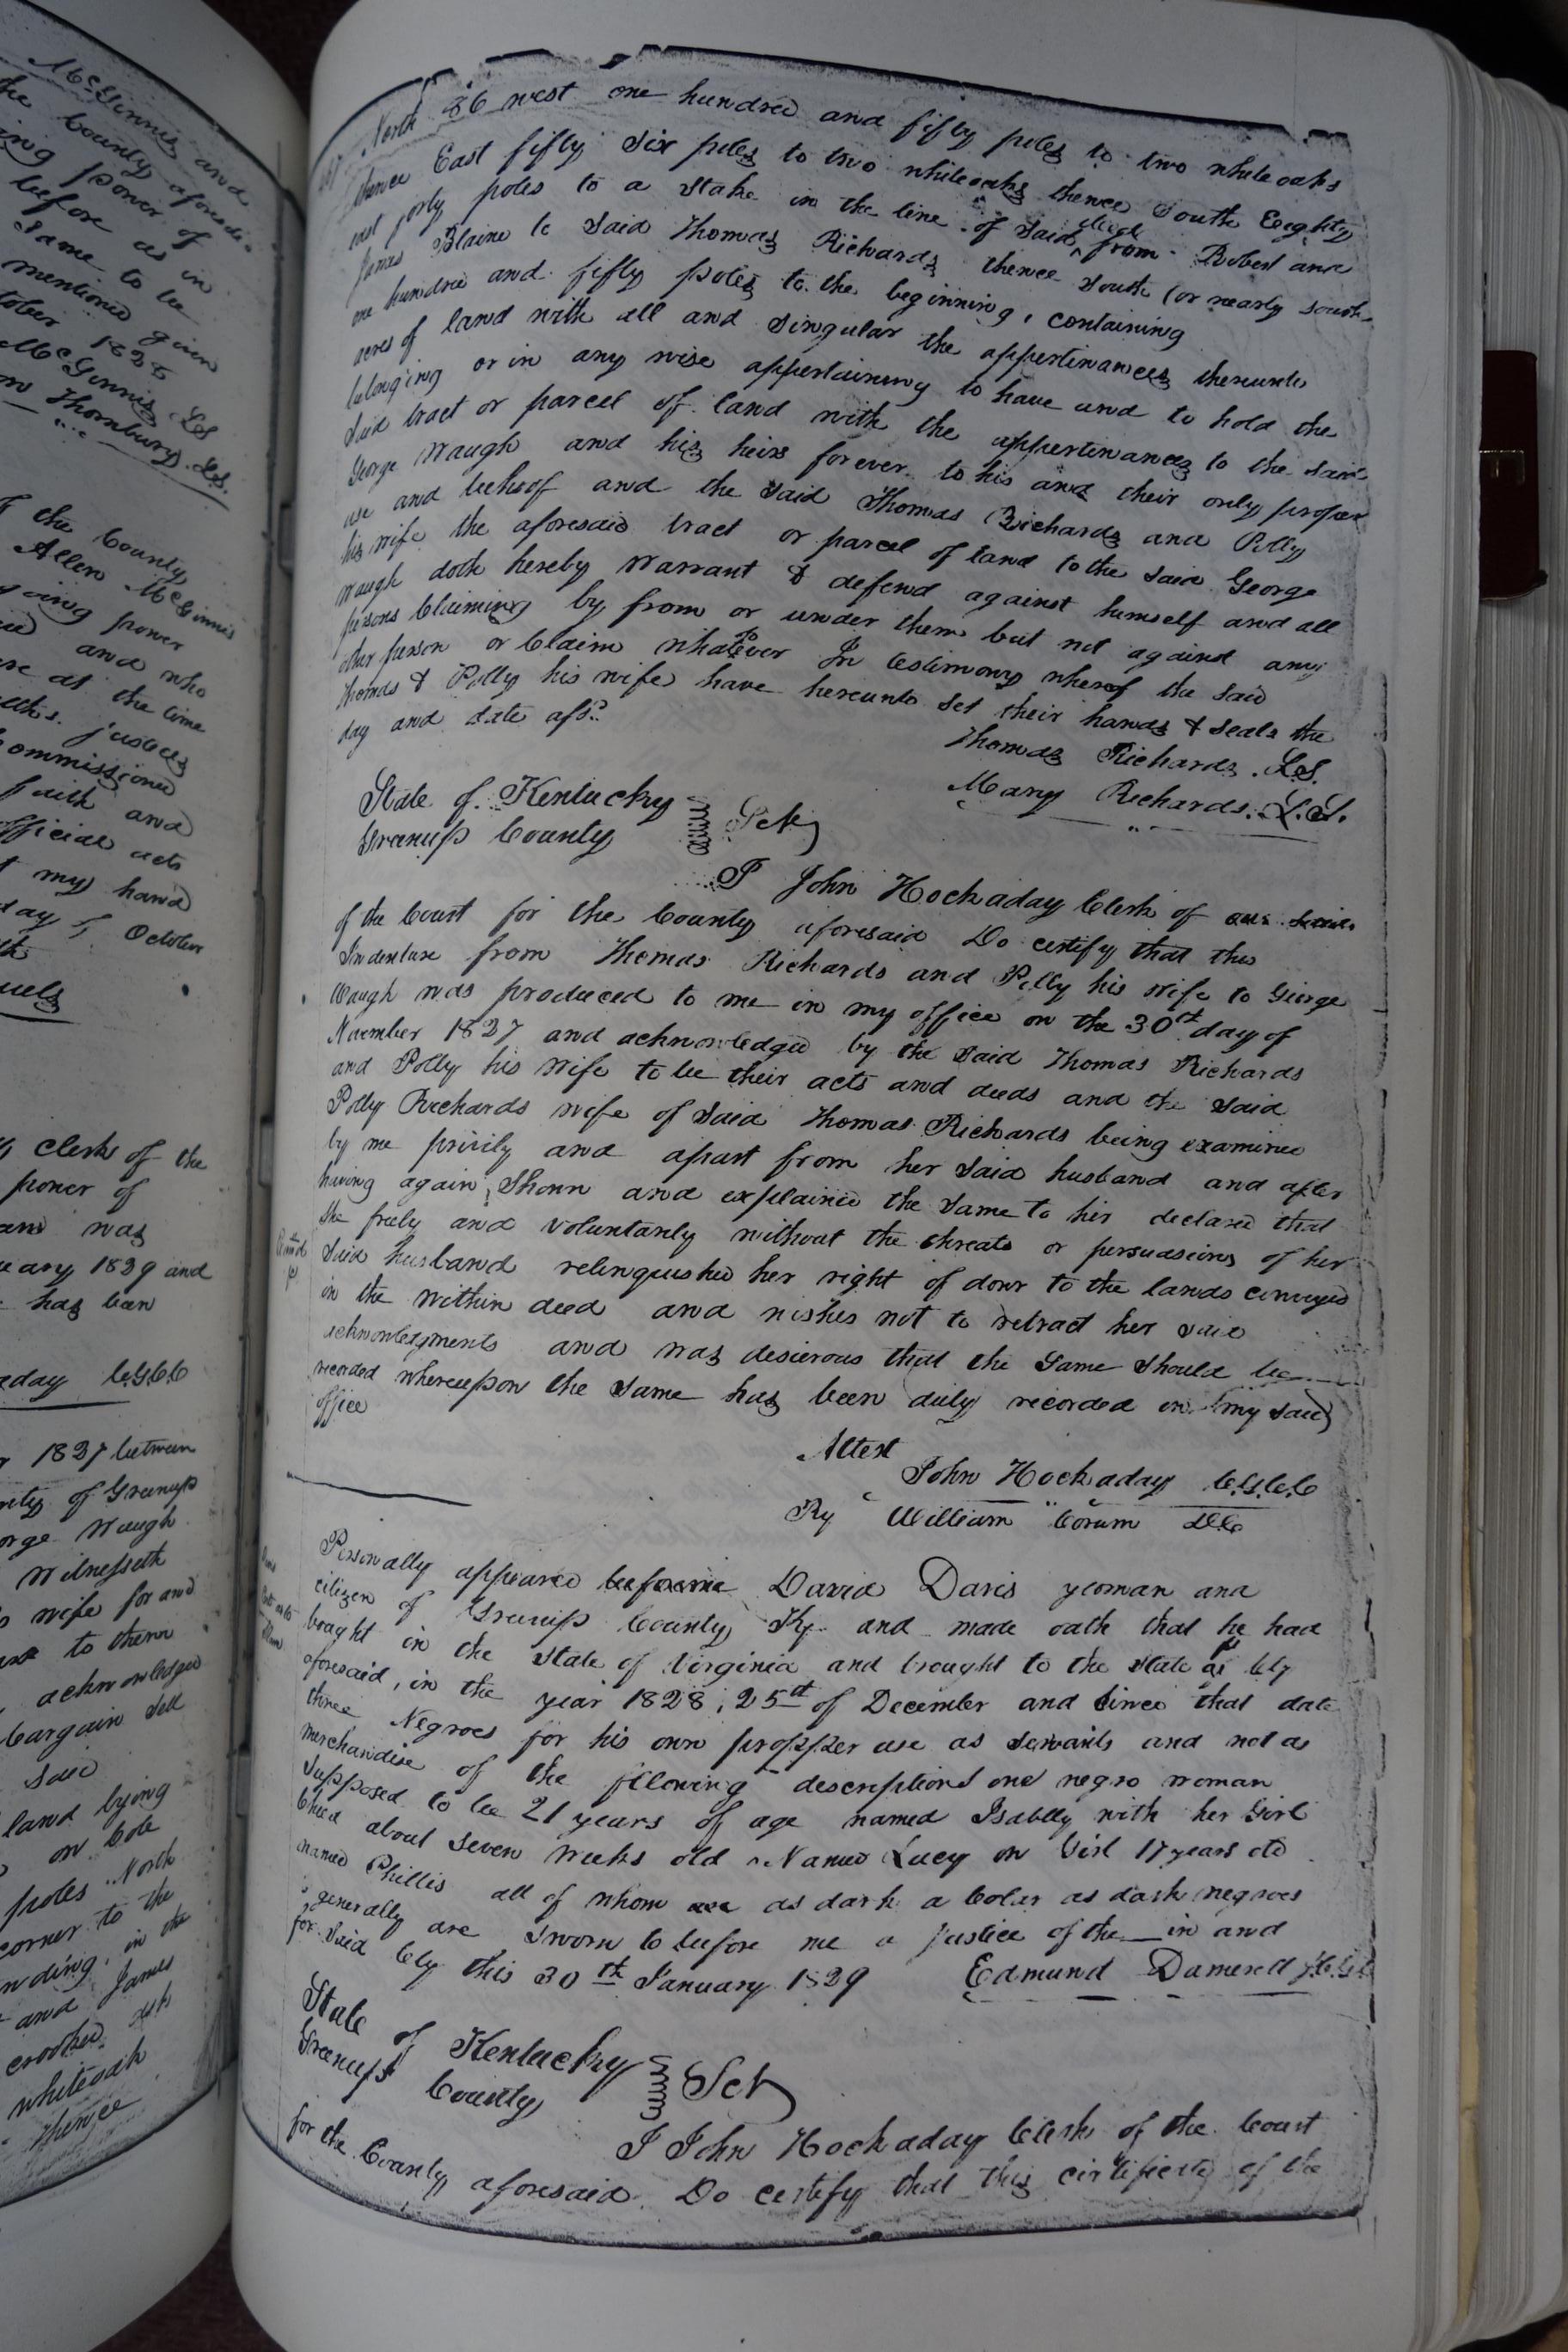 McGinnis and
the County aforesd.
ing power of
before as in
same to be
mentioned given
tober 1828
McGinnis LS
Thornbury LS.
the County
Allen McGinnis
ving power
and who
at the time
justices
Commissioned
faith and
fficial acts
my hand
day of October
uels
clerk of the
power of
was
uary 1829 and
has been
aday C.G.C.C
1827 between
of Greenup
orge Waugh
Witnesseth
wife for and
to them
acknowledged
bargain Sell
Said
land lying
on Cole
poles North
corner to the
nding, in the
and James
crooked
whiteoak
thence
North 86 west one hundred and fifty poles to two white oaks
thence East fifty Six poles to two whiteoaks thence South Eeghty
east forty poles to a Stake in the line of Said deed from Robert and
James Blaine to Said Thomas Richards thence South (or nearly South
one hundred and fifty poles to the beginning, containing
acres of land with all and Singular the appertinances thereunto
belonging or in any wise appertaining to have and to hold the
Said tract or parcel of land with the appertinances to the Said
George Waugh and his heirs forever to his and their only proper
use and behoof and the Said Thomas Richards and Polly
his wife the aforesaid tract or parcel of land to the Said George
Waugh doth hereby Warrant & defend against himself and all
persons Claiming by from or under them but not against any
other person or Claim whatsoever In testimony whereof the Said
Thomas & Polly his wife have hereunto Set their hands & Seals the
day and date afsd.
Thomas Richards. LS.
Mary Richards. L.S.
State of Kentucky
Greenup County Sct
I John Hockaday Clerk of
of the Court for the County aforesaid Do certify that this
Indenture from Thomas Richards and Polly his wife to George
Waugh was produced to me in my office on the 30th day of
November 1827 and acknowledged by the Said Thomas Richards
and Polly his Wife to be their acts and deeds and the Said
Polly Richards wife of Said Thomas Richards being examined
by me privily and apart from her Said husband and after
having again Shown and explained the Same to her declared that
She freely and Voluntarily without the threats or persuasions of her
Said husband relinquished her right of dowr to the lands conveyed
in the within deed and wishes not to retract her Said
acknowledgments and was desierous that the Same Should be
recorded whereupon the Same has been duly recorded in my Said
office
Attest
John Hockaday C.G.C.C
By William Corum D.C
Personally appeared before me David Davis yeoman and
citizen of Greenup County Ky. and made oath that he had
bought in the State of Virginia and brought to the State & Cty
aforesaid, in the year 1828, 25th of December and Since that date
three Negroes for his own propper use as Servants and not as
merchandise of the fllowing descriptions one negro woman
Supposed to be 21 years of age named Isablly with her Girl
Child about Seven Weeks old Named Lucy on Girl 17 years old
named Phillis all of whom are as dark a Color as dark negroes
generally are Sworn to before me a Justice of the in and
for Said Cty this 30th January 1829 Edmund Damerell
State of Kentucky
Greenups County Sct
I John Hockaday Clerk of the Court
for the County aforesaid. Do certify that this certificate of the